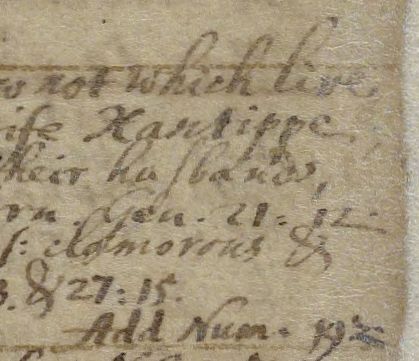 not which live
Xantippe,
their husbands,
Gen. 21: 12
clamorous &
& 27: 15.
Add Num.